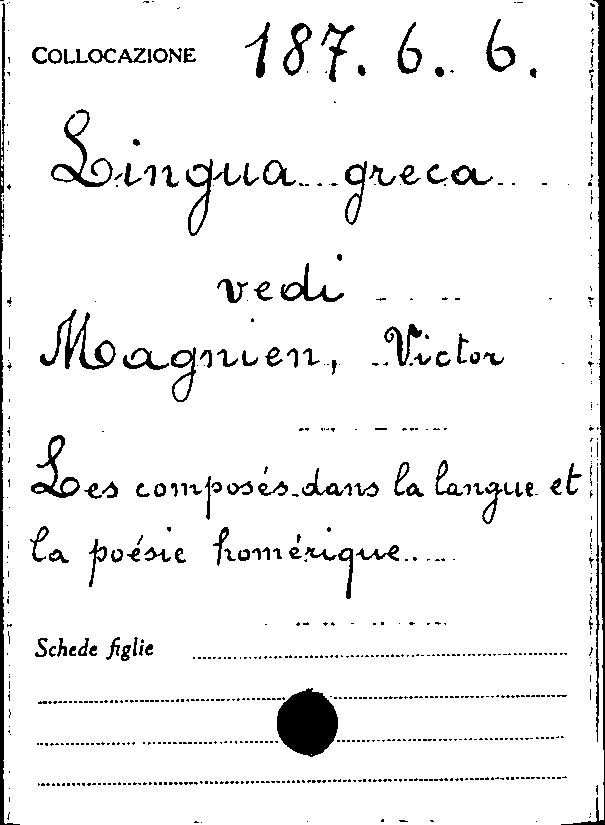 COLLOCAZIONE 187. 6. 6.
Lingua greca
vedi
Magnien, Victor
Les composés dans la langue et
la poésie homérique
Schede figlie